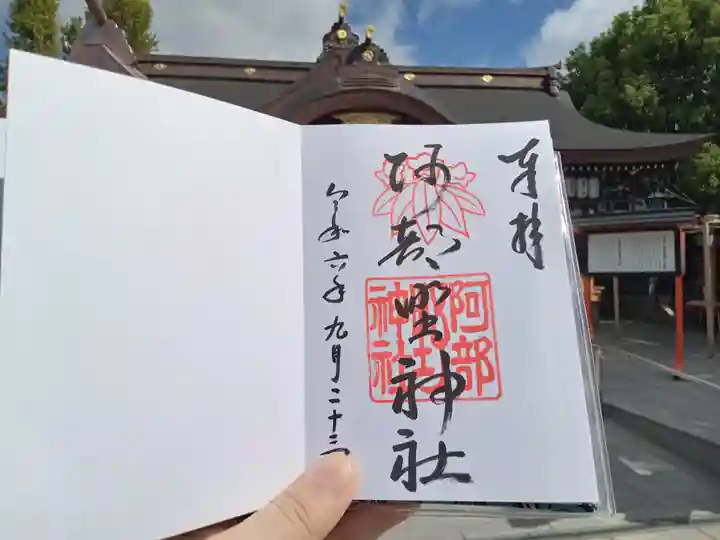 奉拝
阿部野神社
阿部野神社
令和六年九月二十三